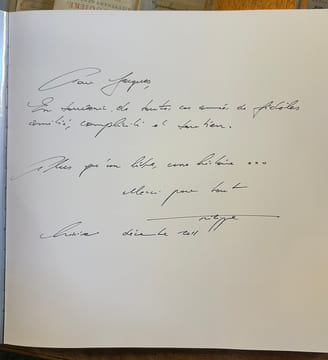 Pour Jacques,
En souvenir de toutes ces années de fidèles
amitié, complicité et soutien.
Plus qu'un livre, une histoire ...
Merci pour tout
Philippe
décembre 2011